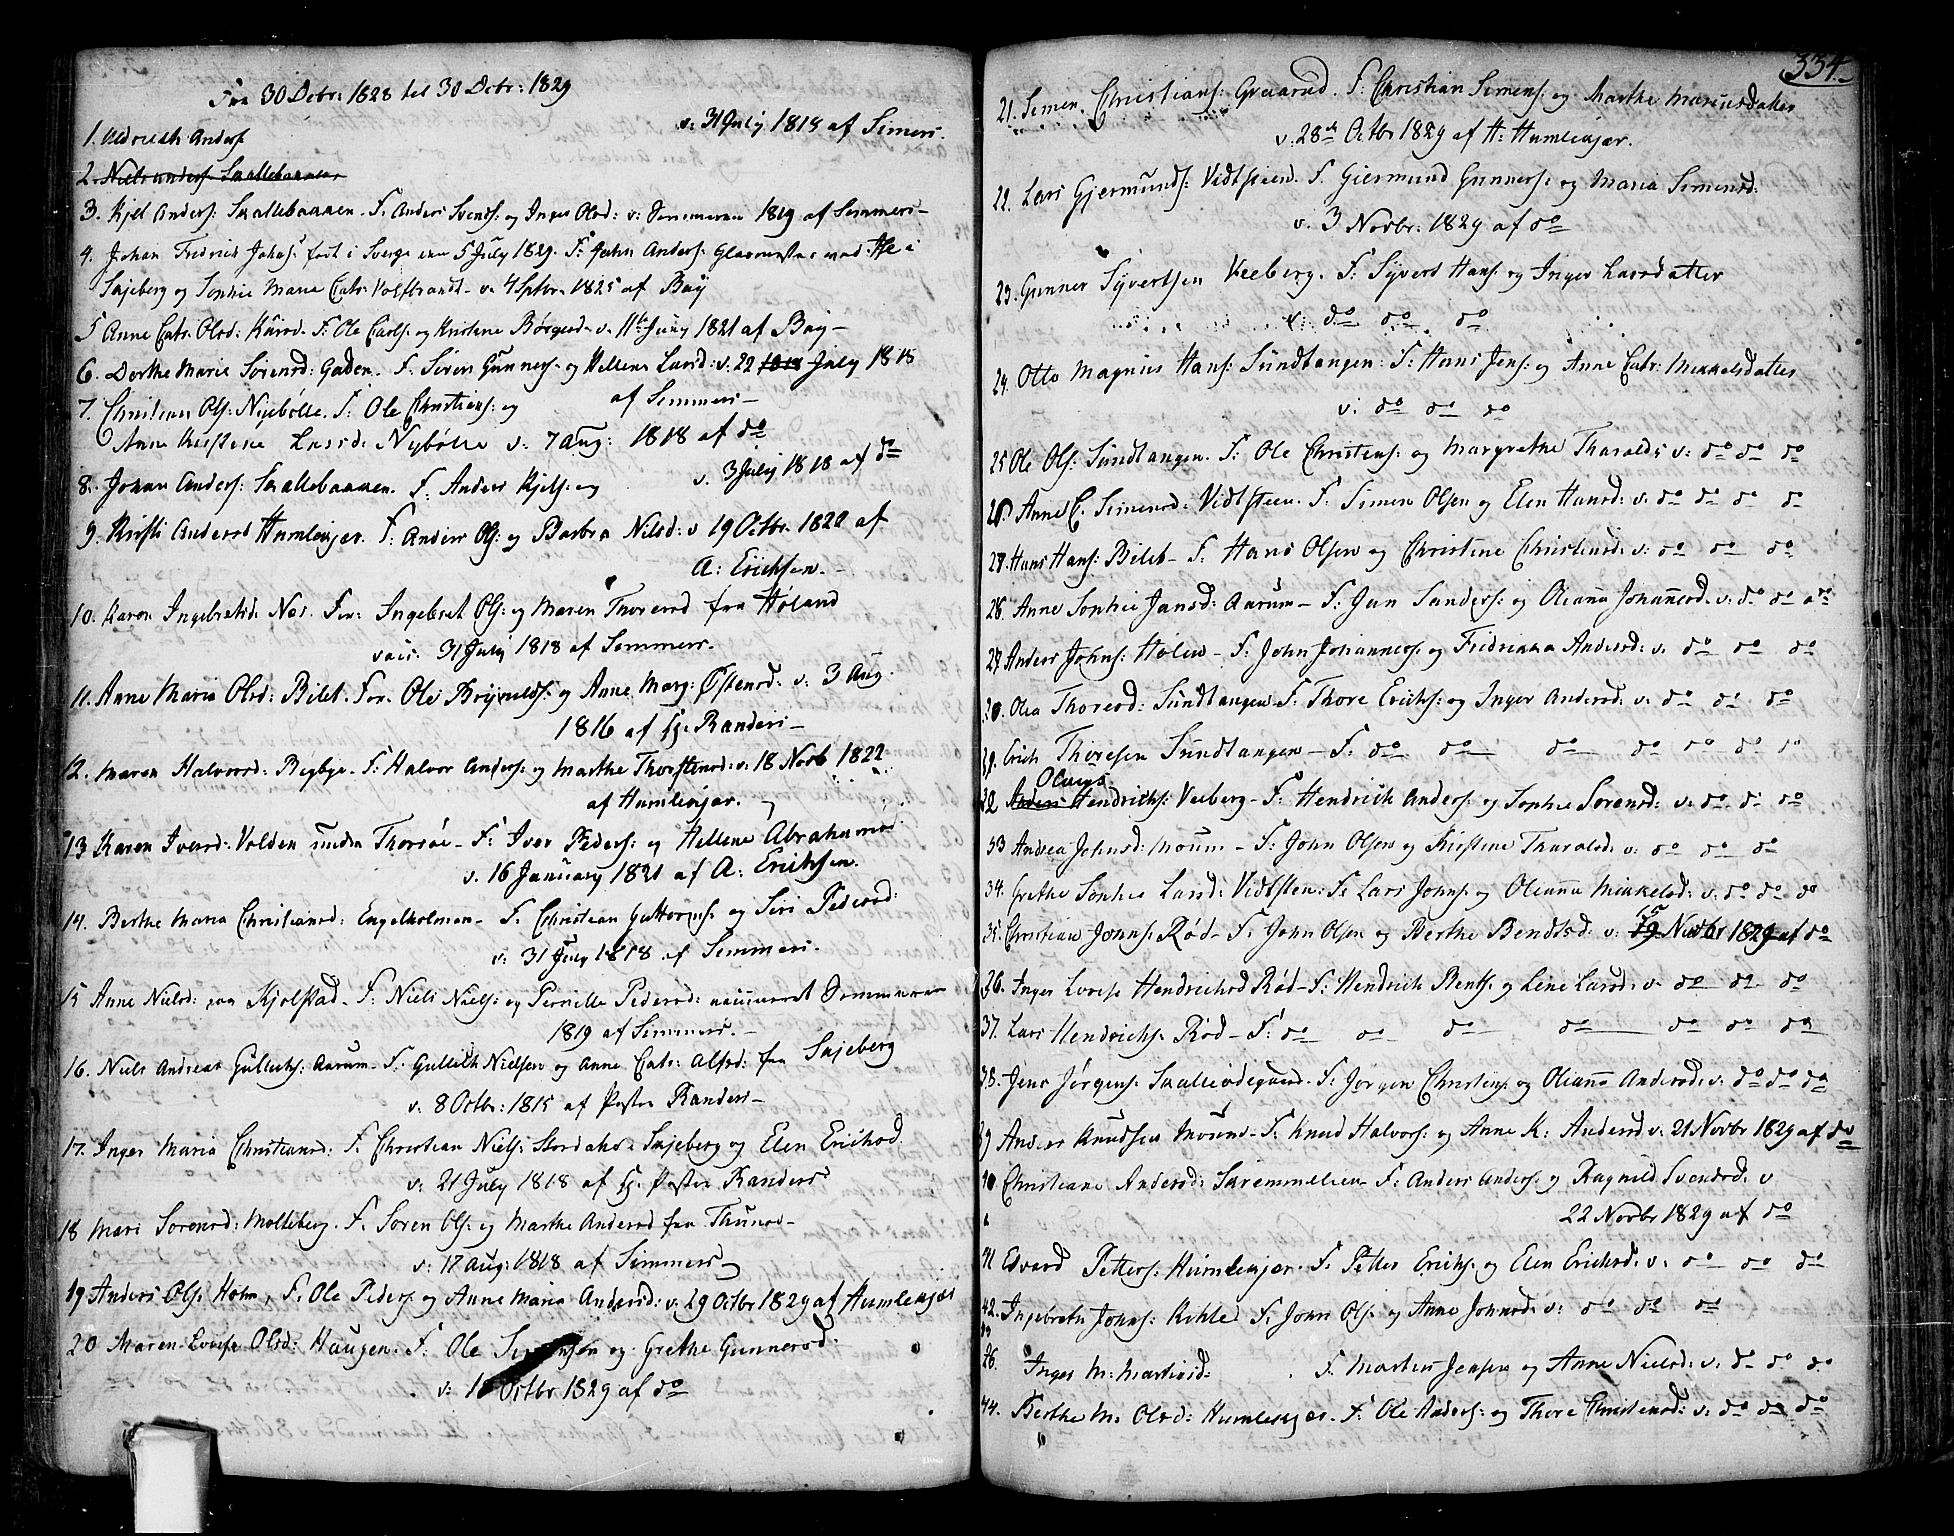 Fra 30 Debr: 1828 til 30 Debr: 1829
1. Anders: v: 31 July 1818 af Simers.
2. Niels Anders: Skallebakken
3. Kjel Anders: Skallebakken. F. Anders Svends: og Inger Olsd: v: Sommeren 1819 af Simmers–
4. Johan Fredrich Johns: født i Sverge den 5 July 1829. F: John Anders: Glasmester i
Skjeberg og Sophie Marie Catr: Volfbrandt v: 4 Septbr. 1825 af Bay
5 Anne Catr: Olsd: F. Ole Carls: og Kristine Børgesd: v. 11te Juny 1821 af Bay–
6. Dorthe Marie Sørensd: Gaden. F. Søren Gunners: og Hellene Larsd: v. 22 July 1818
af Simmers–
7. Christian Ols: Nyebølle. F: Ole Christians: og
Anne Kirstine Larsd: Nybølle v: 7 Aug: 1818 af do
8. Johan Anders: Skallebakken. F. Anders Kjels: og v. 3 July 1818 af do
9. Kirsti Andersd Humlekjær. F. Anders Ols: og Barbra Nilsd: v 19 Octbr. 1820 af
A: Erichsen.–
10. Karen Ingebretsd: Nes. For: Ingebret Ols: og Maren Thoresd fra Høland
vacc. 31 July 1818 af Sommers.
11. Anne Maria Olsd: Bilet. For. Ole Brynilds: og Anne Marg: Østensd: v: 3 Aug.
1816 af Hr. Randers–
12. Maren Halvorsd: Rigbye. F: Halvor Anders: og Marthe Thorstensd: v: 18 Novb 1822
af Humlekjær.
13 Karen Iversd: Volden under Thorsøe– F: Iver Peders: og Hellene Abrahamsd:
v. 16 January 1821 af A: Erichsen.
14. Berthe Maria Christiansd: Engelholmen– F. Christian Guttorms: og Siri Pedersd:
v: 31 July 1818 af Simmers.
15 Anne Nielsd: paa Kjølstad. F: Niels Niels: og Pernille Pedersd: Sommeren
1819 af Simmers.–
16. Niels Andreas Gullichs: Aarum– F. Gullich Nielsen og Anne Catr: Alfsd: fra Skjeberg
v: 8 Octbr: 1815 af Pastor Randers–
17. Inger Maria Christiansd: F. Christian Niels: Skjeberg og Elen Erichsd:
v: 21 July 1818 af Hr. Pastor Randers
18 Mari Sørensd: Molteberg. F. Søren Ols: og Marthe Andersd fra Thunøe–
v: 17 Aug: 1818 af Simmers–
19 Anders Ols: Holm, F: Ole Peders: og Anne Maria Andersd: v: 29 Octbr 1829 af Humlekjær
20 Maren Lovise Olsd: Haugen: F: Ole og Grethe Gunnersd:
v: Octbr 1829 af do
334.
21. Simen Christians: Graarud. F: Christian Simens: og Marthe Mariusdatter
v: 28de Octbr 1829 af H: Humlekjær.
22. Lars Gjermunds: Vidtsteen. F. Giermund Gunners: og Maria Simensd:
v. 3 Novbr: 1829 af do
23. Gunner Syvertsen Veeberg. F: Syvert Hans: og Inger Larsdatter
v: do do do
24. Otto Magnus Hans: Sundtangen: F: Hans Jens: og Anne Catr: Mikkelsdatter
v: do do do
25 Ole Ols: Sundtangen. F: Ole Christens: og Margrethe Tharalds v: do do do
26. Anne C. Simensd: Vidtsteen. F: Simen Olsen og Elen Hansd: v: do do do
27. Hans Hans: Bilet– F. Hans Olsen og Christine Christensd: v: do do do
28. Anne Sophie Jansd: Aarum– F: Jan Sanders: og Oleana Johannesd: v: do do do
29 Anders Johns: Holen– F: John Johannes: og Fridrikka Andersd: v: do do do
30. Olea Thoresd: Sundtangen F: Thore Erichs: og Inger Andersd: v: do do do
31. Erich Thoresen Sundtangen– F: do do do do do do do
Olaus
32 Anders Hendrichs: Veeberg– F: Hendrich Anders: og Sophie Sørensd: v: do do do
33 Andrea Johnsd: Moum– F: John Olsen og Kirstine Tharalsd: v: do do do
34. Grethe Sophie Larsd: Vidtsten: F: Lars Johns: og Oleana Mikkelsd: v: do do do
35. Christian Johns: Rød– F: John Olsen og Berthe Bendtsd: v: Novbr 1829 af do
36. Inger Lovise Hendrichsd Rød– F: Hendrich Bents: og Lene Larsd: v– do do do
37. Lars Hendrichs: Rød– F: do do do do do do do
38. Jens Jørgens: Skalleødegaard. F: Jørgen Christens: og Oleana Andersd: v: do do do
39 Anders Knudsen Moum– F: Knud Halvors: og Anne K: Andersd v: 21 Novbr 1829 af do
40 Christiane Andersd: Skremmelsen F: Anders Anders: og Ragnild Svendsd: v
22 Novbr 1829 af do
41 Edvard Petters: Humlekjær. F: Petter Erichs: og Elen Erichsd: v: do do do
42. Ingebreth Johns: Kihle F: John Ols: og Anne Johnsd: v: do do do
Inger M: Martinsd: F. Morten Jensen og Anne Nielsd: v: do do do
44. Berthe M. Olsd: Humlekjær. F: Ole Anders: og Thore Christensd: v: do do do